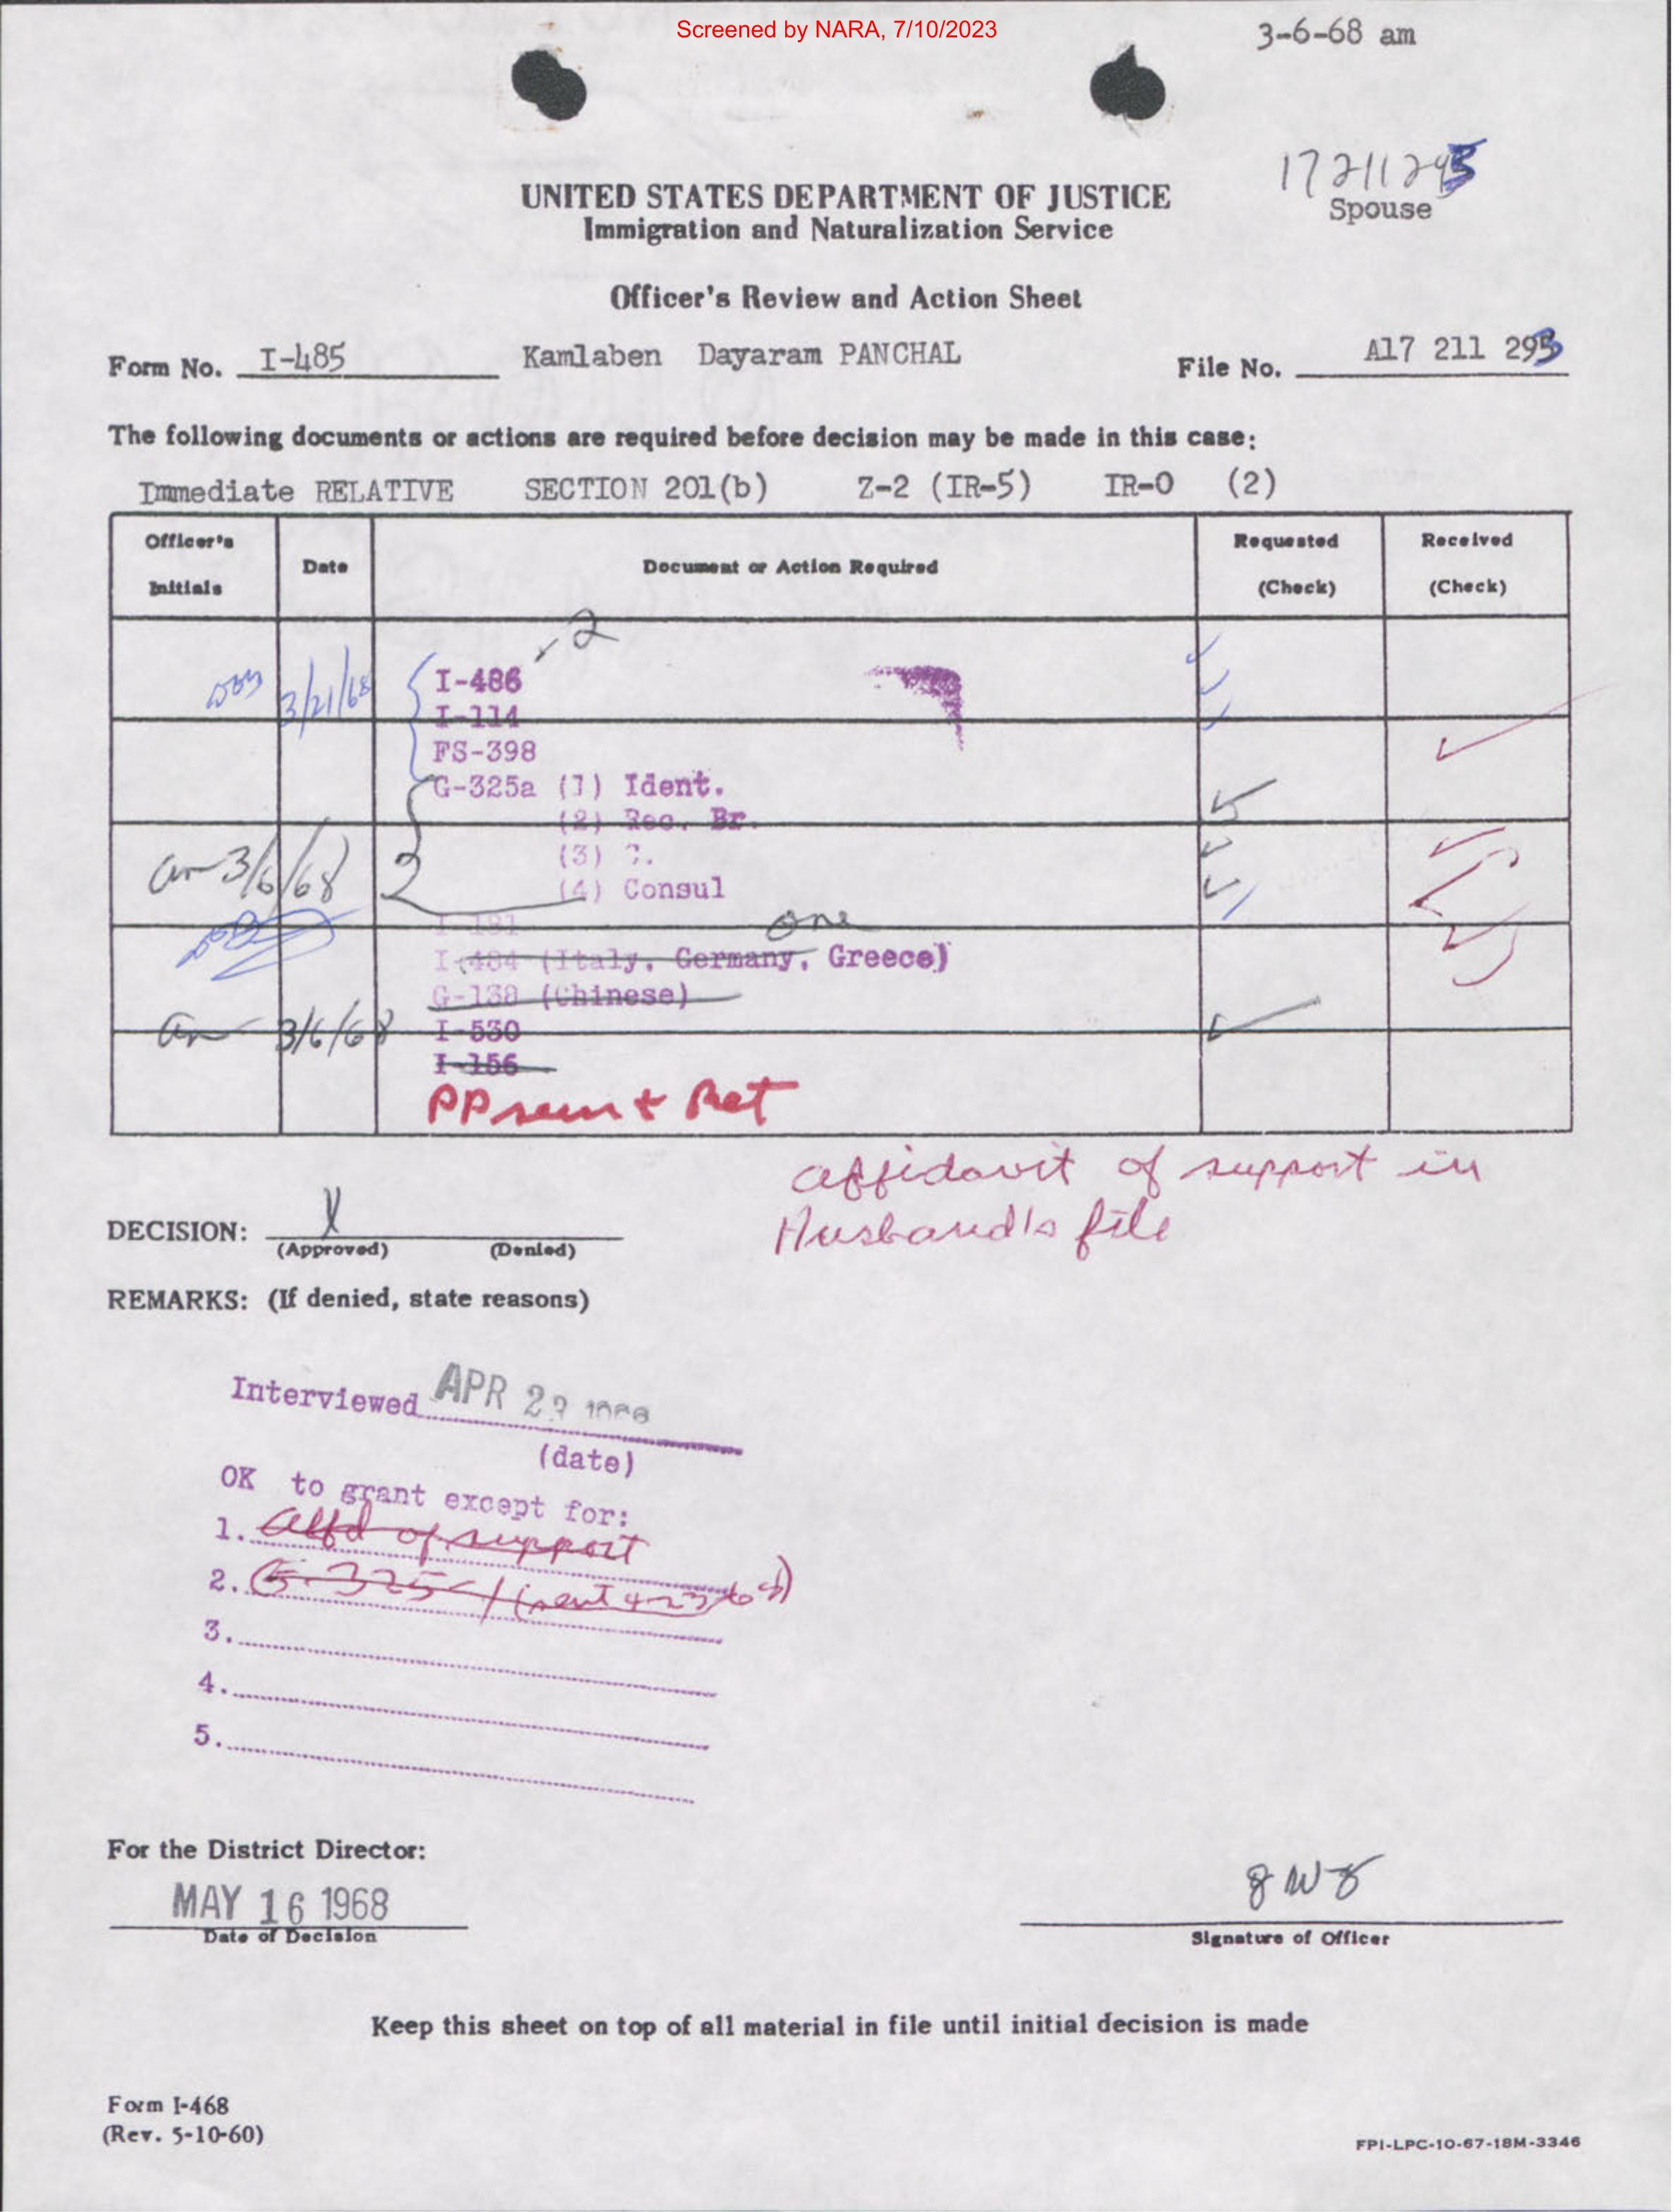 Screened by NARA, 7/10/2023
3-6-68 am
Spouse
UNITED STATES DEPARTMENT OF JUSTICE
Immigration and Naturalization Service
Officer's Review and Action Sheet
Form No. I-485 Kamlaben Dayaram PANCHAL File No. A17 211 293
The following documents or actions are required before decision may be made in this case:
Immediate RELATIVE SECTION 201(b) Z-2 (IR-5) IR-0 (2)
Officer's Initials Date Document or Action Required Requested (Check) Received (Check)
2
3/21/68 I-486
I-114
FS-398
G-325a (1) Ident.
(2) Rec. Br.
3/6/68 2 (3)
(4) Consul
I-181
one
I-484 (Italy, Germany, Greece)
G-138 (Chinese)
3/6/68 I-530
I-156
PP seen & Ret
affidavit of support in
Husband's file
DECISION: X
(Approved) (Denied)
REMARKS: (If denied, state reasons)
Interviewed APR 29 1968
(date)
OK to grant except for:
1. affd of support
2. G-325
3.
4.
5.
For the District Director:
MAY 16 1968
Date of Decision
Signature of Officer
Keep this sheet on top of all material in file until initial decision is made
Form I-468
(Rev. 5-10-60)
FPI-LPC-10-67-18M-3346